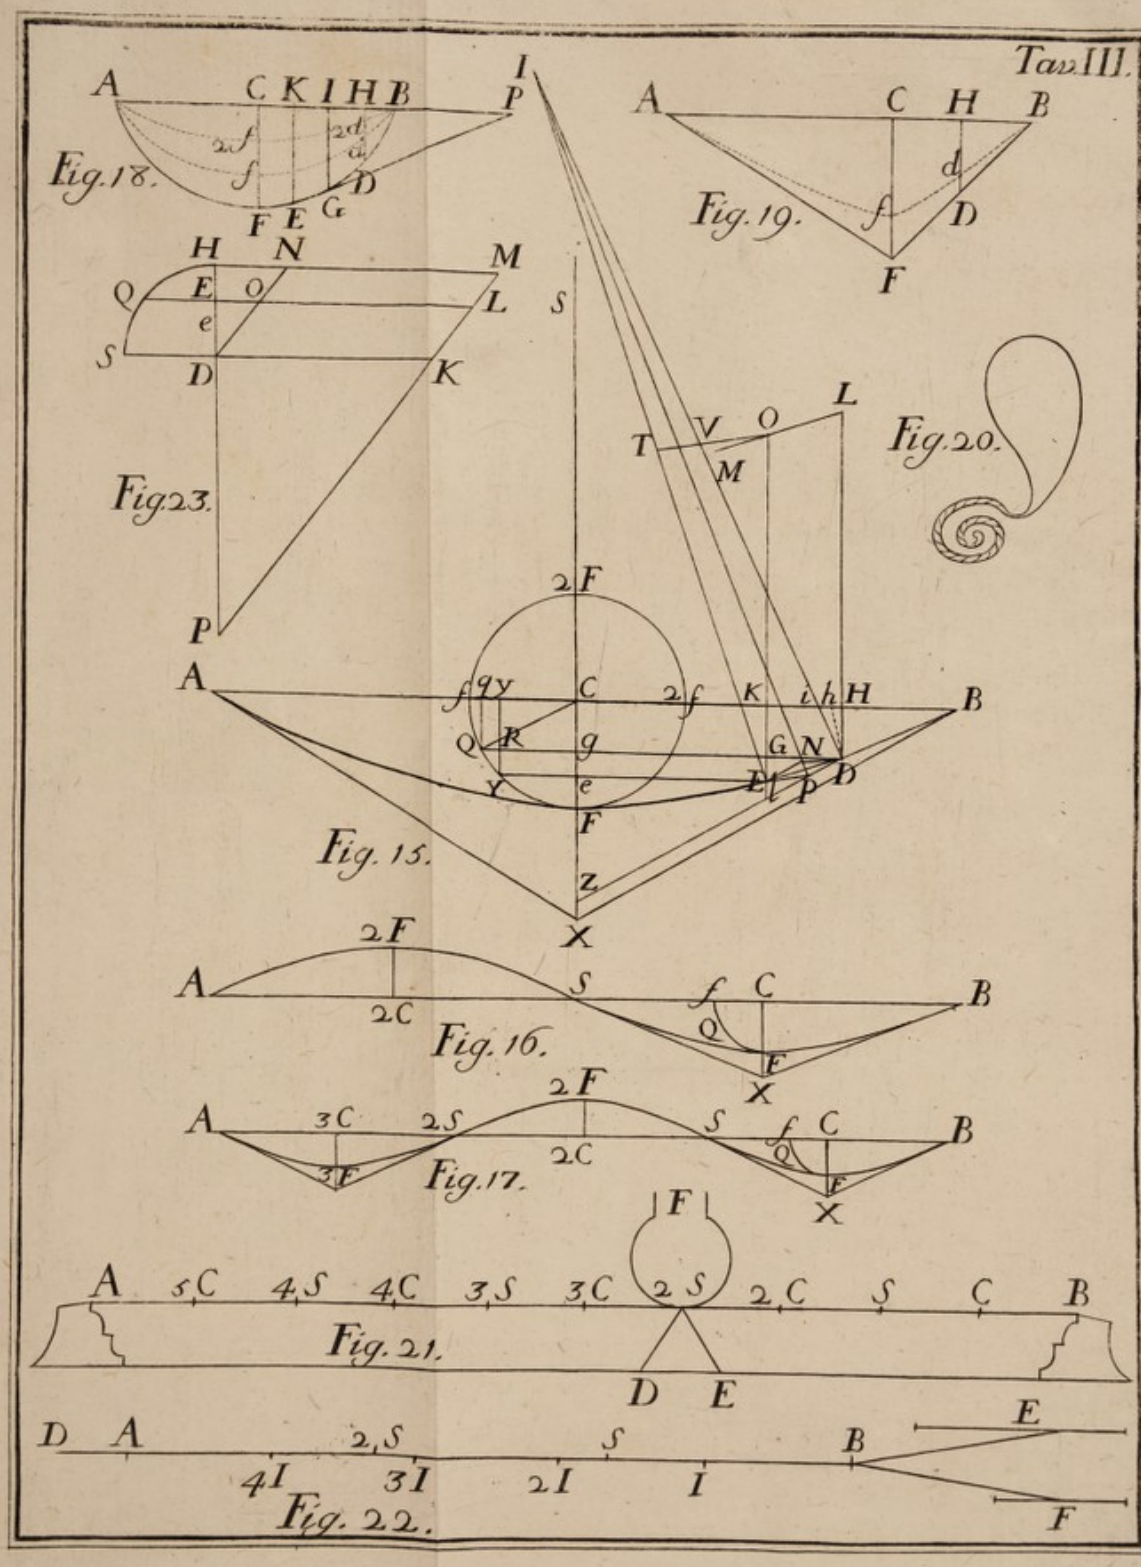 Tav. III.
A C K I H B P
2f 2d
f d
D
G
F E
Fig. 18.
I
A C H B
d
f D
F
Fig. 19.
H N M
Q E O L
e
S D K
P
Fig. 23.
S
T V O L
M
Fig. 20.
2F
A f q y C 2f K i h H B
Q R g G N
Y e E l P D
F
Z
X
Fig. 15.
2F
A S f C B
2C Q F
X
Fig. 16.
2F
A 3C 2S S f C B
3F 2C Q F
X
Fig. 17.
F
A 5C 4S 4C 3S 3C 2S 2C S C B
Fig. 21.
D E
D A 2S S B E
4I 3I 2I I F
Fig. 22.